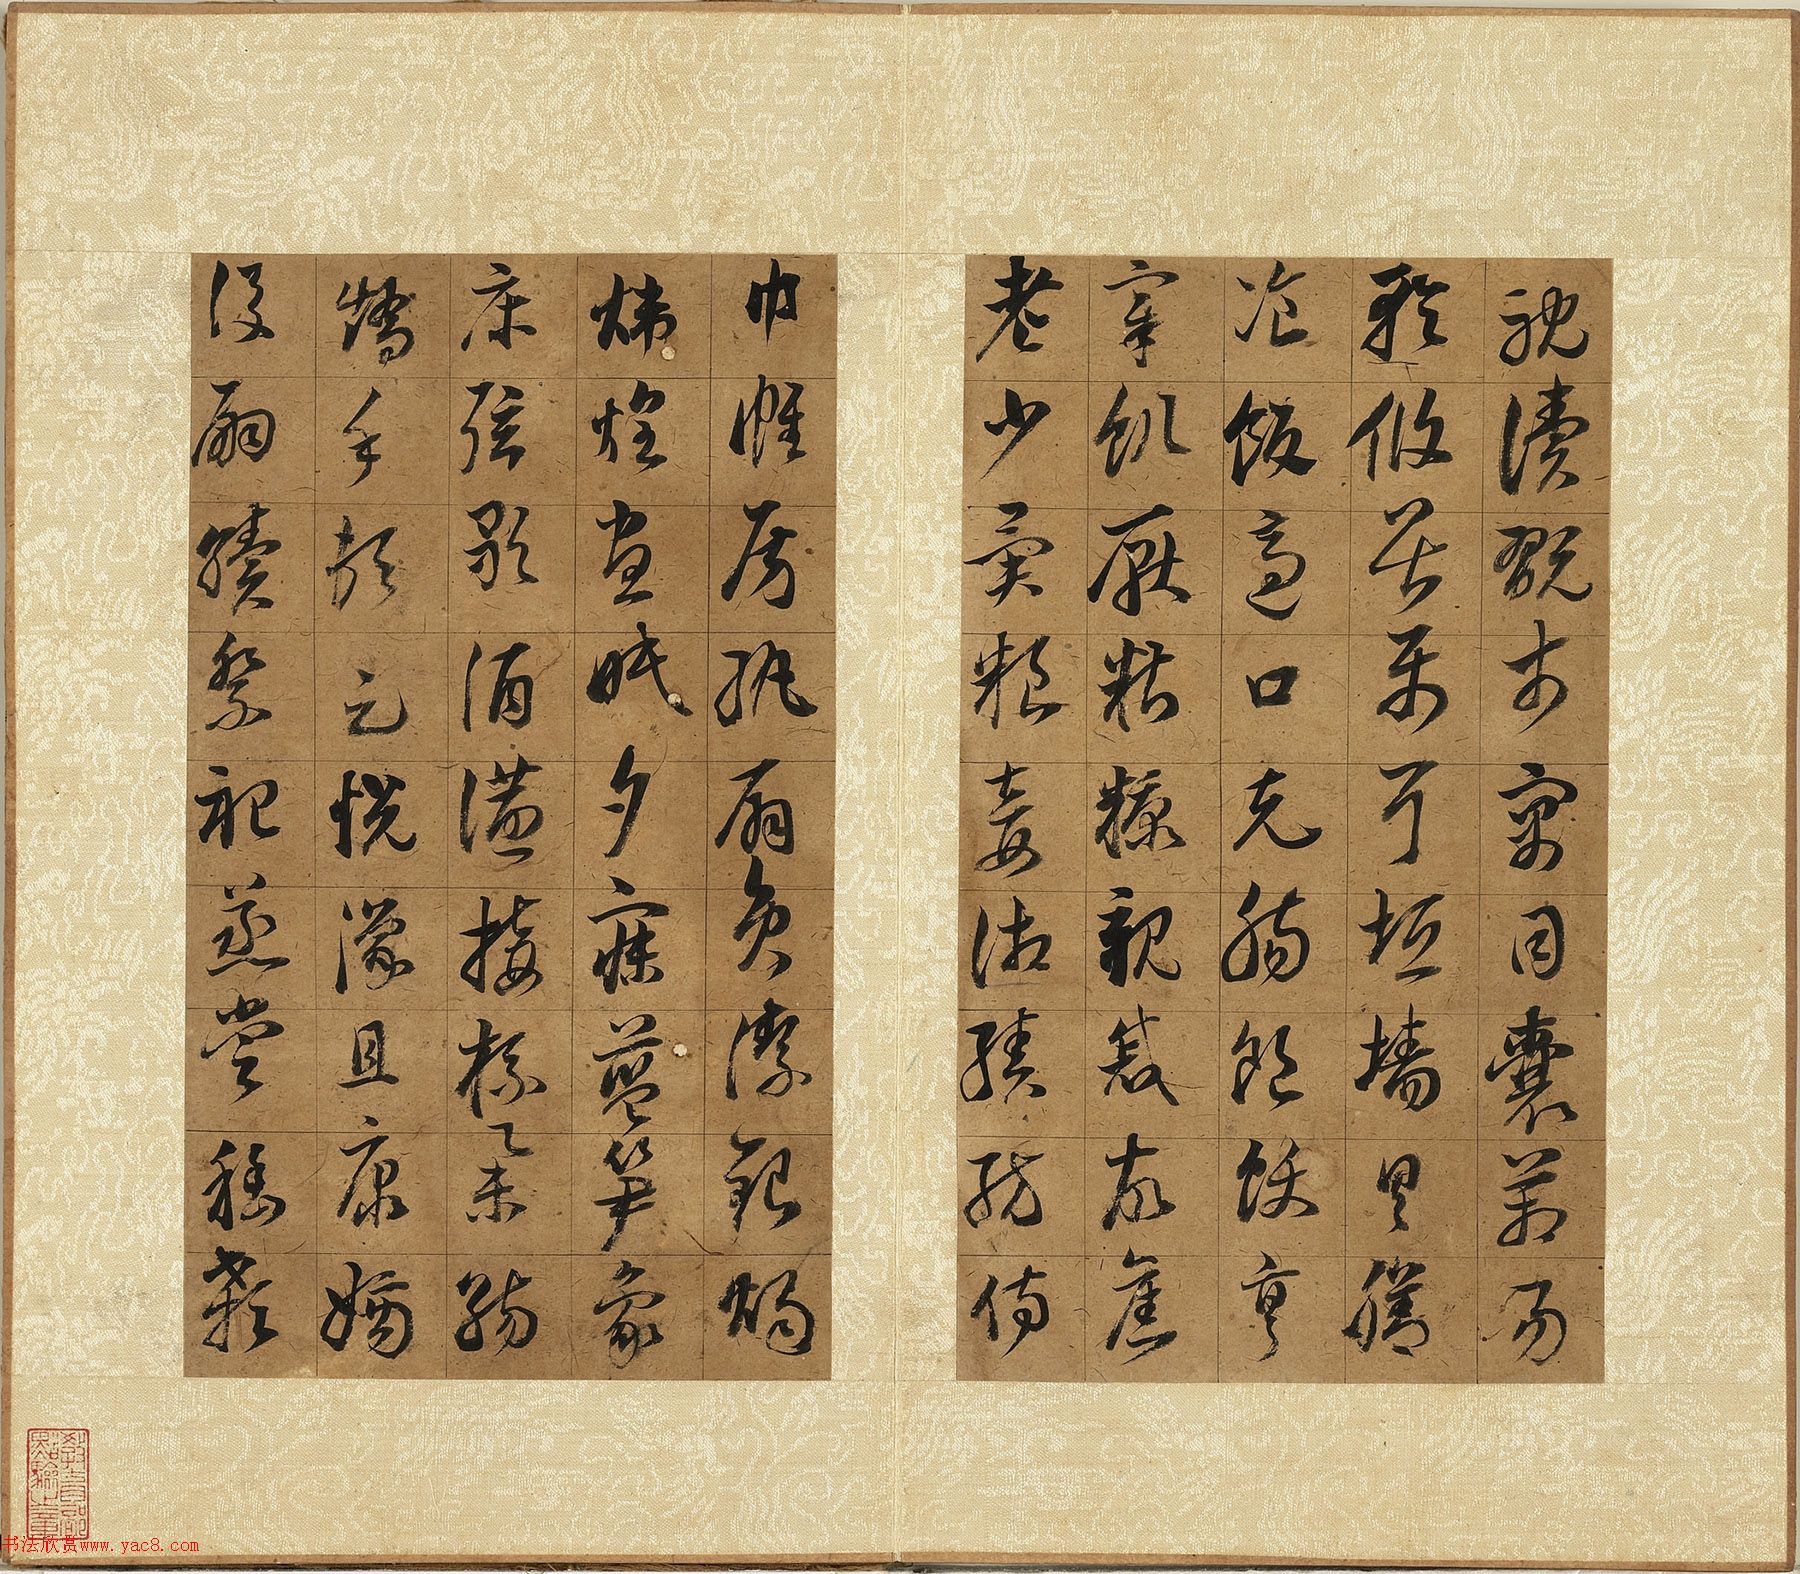 耽讀翫市寓目囊箱易
輶攸畏屬耳垣牆具膳
飡飯適口充腸飽飫亨
宰飢厭糟糠親戚故舊
老少異糧妾御績紡侍
巾帷房紈扇員潔銀燭
煒煌晝眠夕寐藍笋象
床弦歌酒讌接杯舉觴
矯手頓足悅豫且康嫡
後嗣續祭祀蒸嘗稽顙
教育部
點驗之章
书法欣赏www.yac8.com